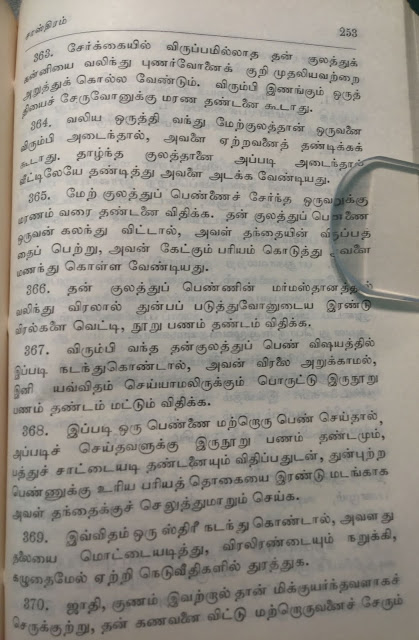 சாஸ்திரம் 253
363. சேர்க்கையில் விருப்பமில்லாத தன் குலத்துக்
கன்னியை வலிந்து புணர்வோனைக் குறி முதலியவற்றை
அறுத்துக் கொல்ல வேண்டும். விரும்பி இணங்கும் ஒருத்
தியைச் சேருவோனுக்கு மரண தண்டனை கூடாது.
364. வலிய ஒருத்தி வந்து மேற்குலத்தான் ஒருவனை
விரும்பி அடைந்தால், அவளை ஏற்றவனைத் தண்டிக்கக்
கூடாது. தாழ்ந்த குலத்தானை அப்படி அடைந்தால்
வீட்டிலேயே தண்டித்து அவளை அடக்க வேண்டியது.
365. மேற் குலத்துப் பெண்ணைச் சேர்ந்த ஒருவனுக்கு
மரணம் வரை தண்டனை விதிக்க. தன் குலத்துப் பெண்ணை
ஒருவன் கலந்து விட்டால், அவள் தந்தையின் விருப்பத்
தைப் பெற்று, அவன் கேட்கும் பரியம் கொடுத்து அவளை
மணந்து கொள்ள வேண்டியது.
366. தன் குலத்துப் பெண்ணின் மர்மஸ்தானத்தில்
வலிந்து விரலால் துன்பப் படுத்துவோனுடைய இரண்டு
விரல்களை வெட்டி, நூறு பணம் தண்டம் விதிக்க.
367. விரும்பி வந்த தன்குலத்துப் பெண் விஷயத்தில்
இப்படி நடந்துகொண்டால், அவன் விரலை அறுக்காமல்,
இனி யவ்விதம் செய்யாமலிருக்கும் பொருட்டு இருநூறு
பணம் தண்டம் மட்டும் விதிக்க.
368. இப்படி ஒரு பெண்ணை மற்றொரு பெண் செய்தால்,
அப்படிச் செய்தவளுக்கு இருநூறு பணம் தண்டமும்,
பத்துச் சாட்டையடி தண்டனையும் விதிப்பதுடன், துன்புற்ற
பெண்ணுக்கு உரிய பரியத் தொகையை இரண்டு மடங்காக
அவள் தந்தைக்குச் செலுத்துமாறும் செய்க.
369. இவ்விதம் ஒரு ஸ்திரீ நடந்து கொண்டால், அவளது
தலையை மொட்டையடித்து, விரலிரண்டையும் நறுக்கி,
கழுதைமேல் ஏற்றி நெடுவீதிகளில் துரத்துக.
370. ஜாதி, குணம் இவற்றால் தான் மிக்குயர்ந்தவளாகச்
செருக்குற்று, தன் கணவனை விட்டு மற்றொருவனைச் சேரும்